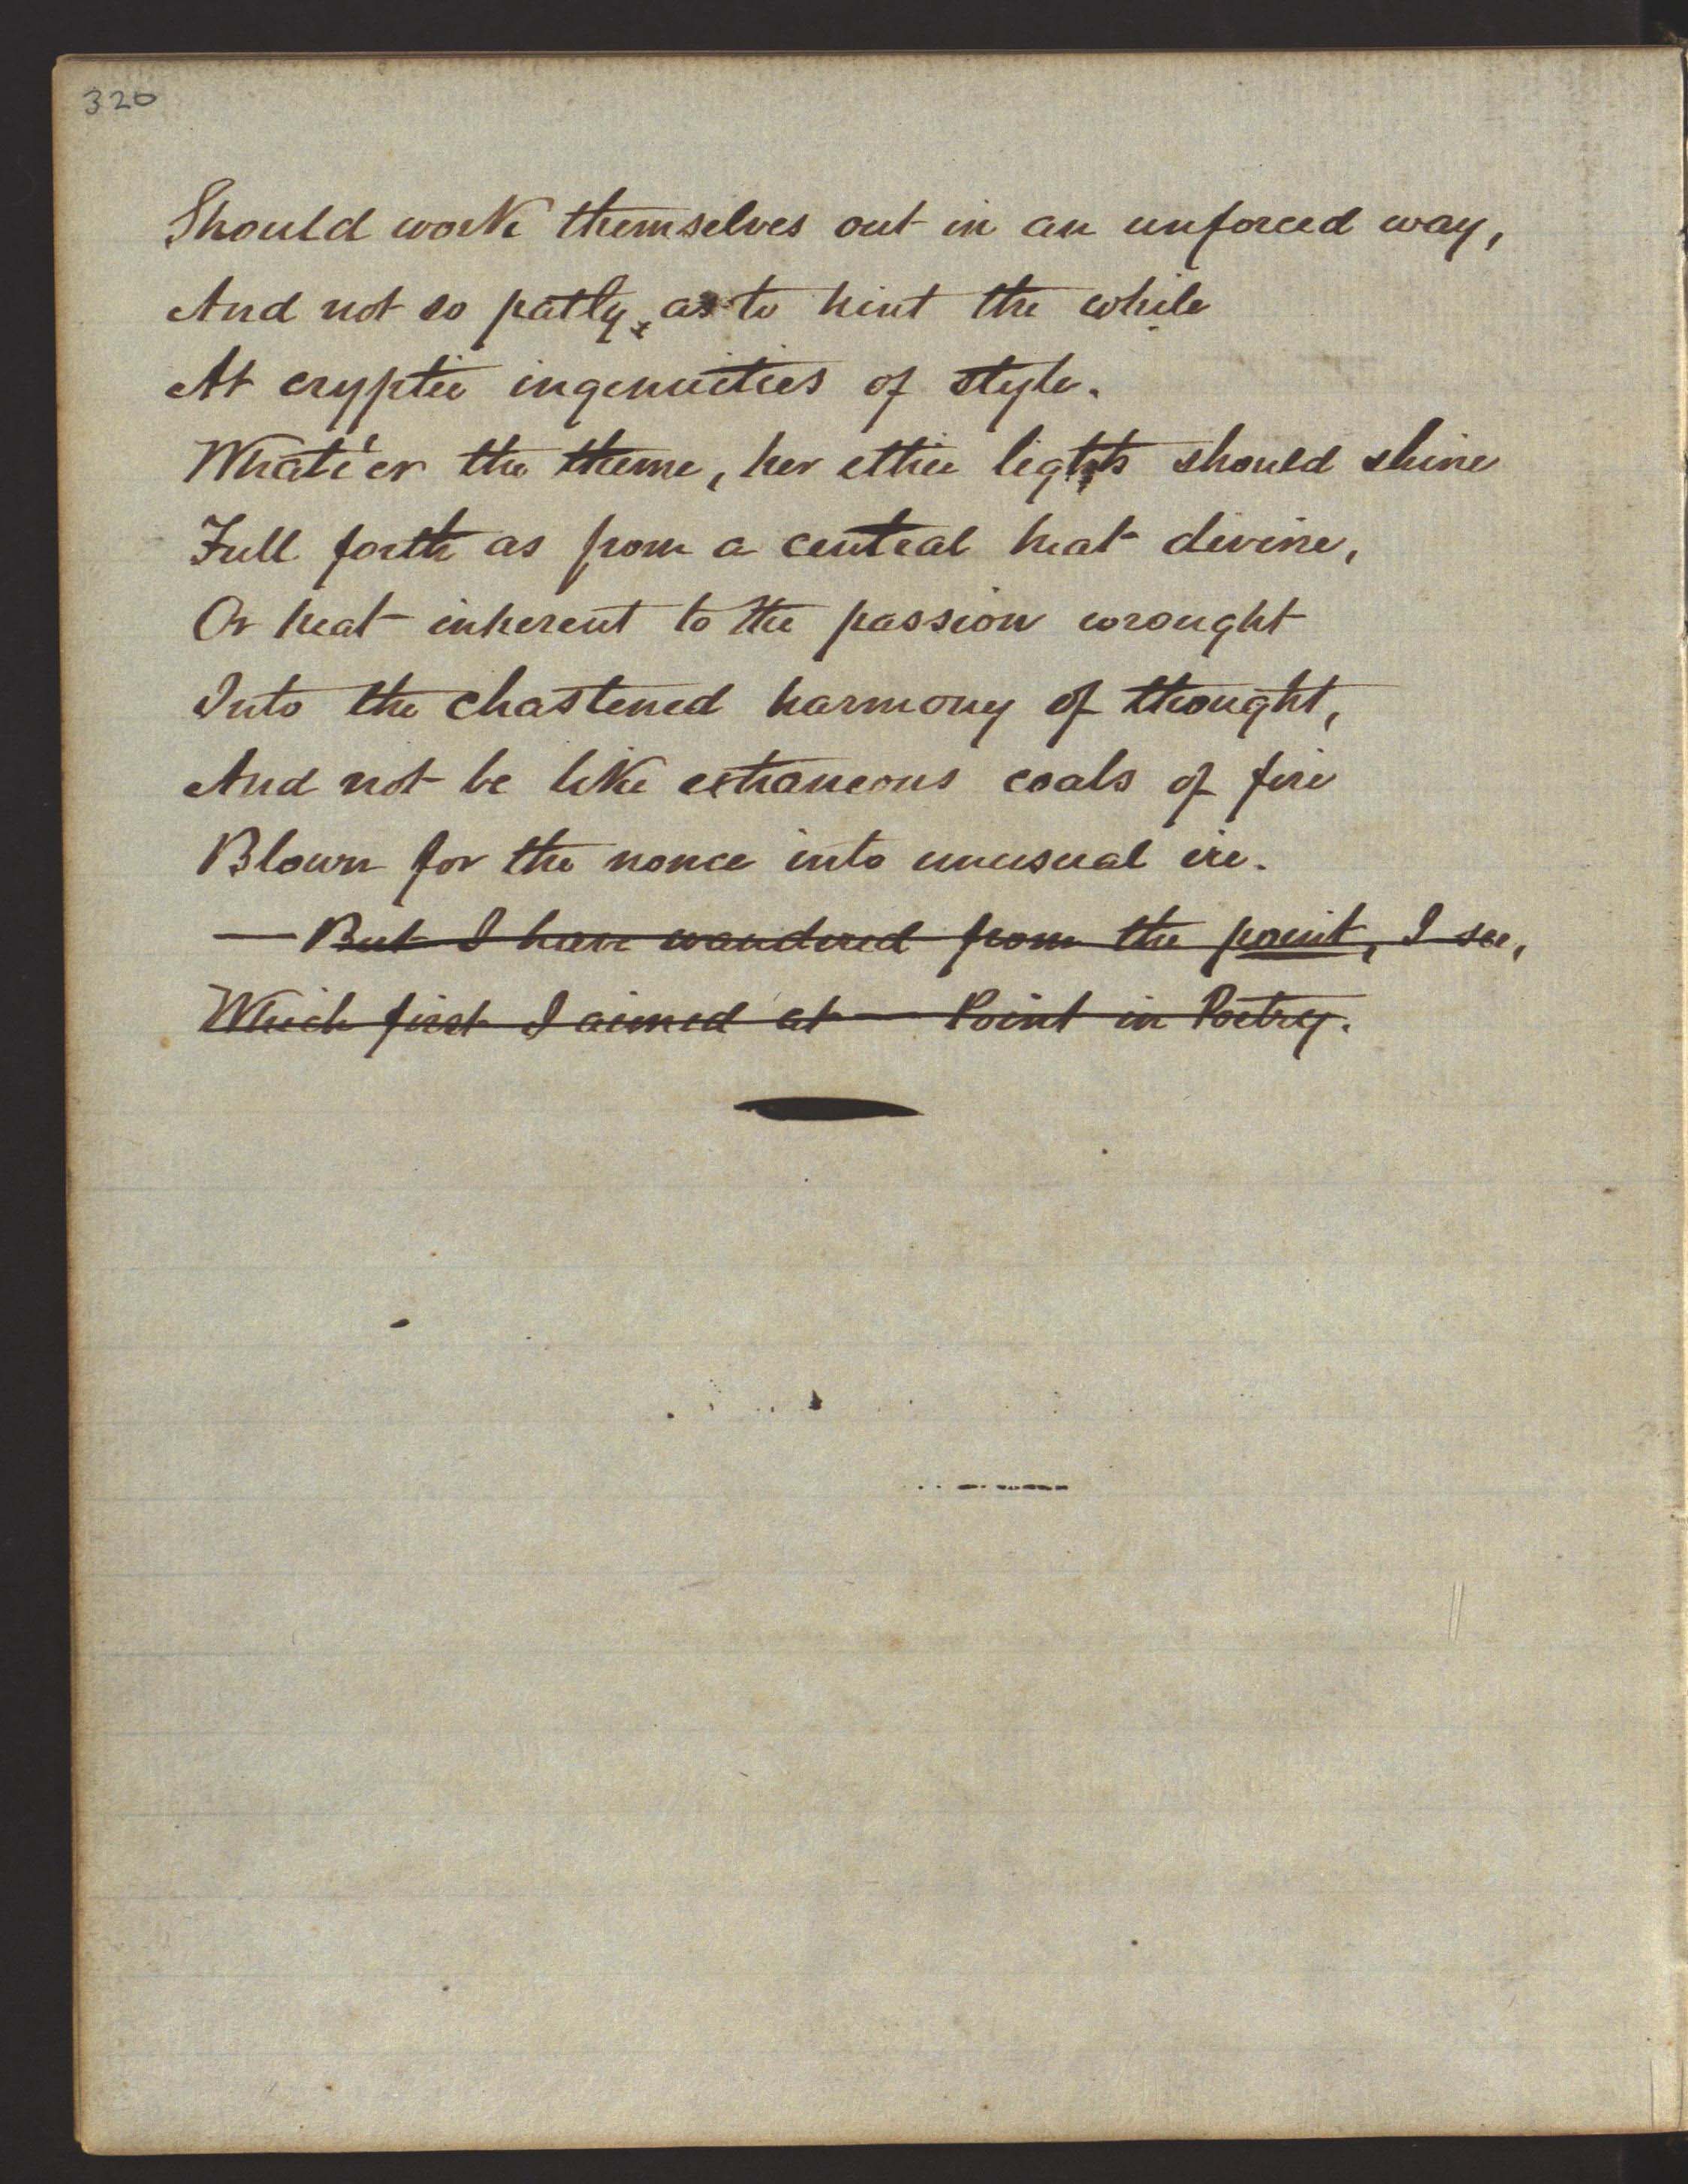 326
Should work themselves out in an unforced way,
And not so patly, as to hint the while
At cryptic ingenuities of style.
Whate'er the theme, her ethic lights should shine
Full forth as from a central heat divine,
Or heat inherent to the passion wrought
Into the chastened harmony of thought,
And not be like extraneous coals of fire
Blown for the nonce into unusual ire.
— But I have wandered from the point, I see,
Which first I aimed at — Point in Poetry.